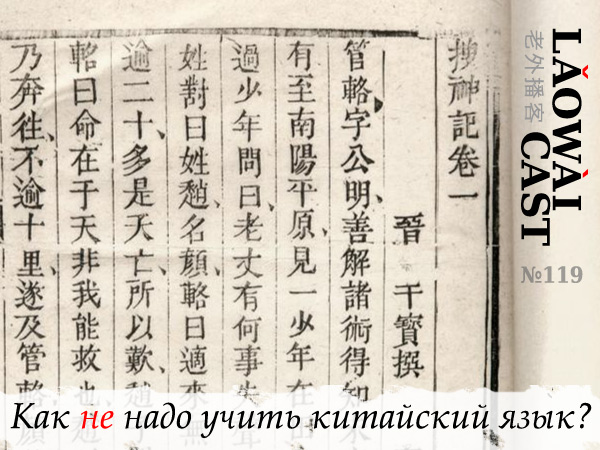 搜神記卷一
晉 干寶撰
管輅字公明、善解諸術得知
有至南陽平原、見一少年在
過少年問曰、老丈有何事失
姓對曰姓趙、名顏輅曰適來無
逾二十、多是夭亡、所以歎、趙
輅曰命在于天非我能救也趙
乃奔徃、不逾十里、遂及管輅
LǍOWÀI CAST
老外播客
№119
Как не надо учить китайский язык?